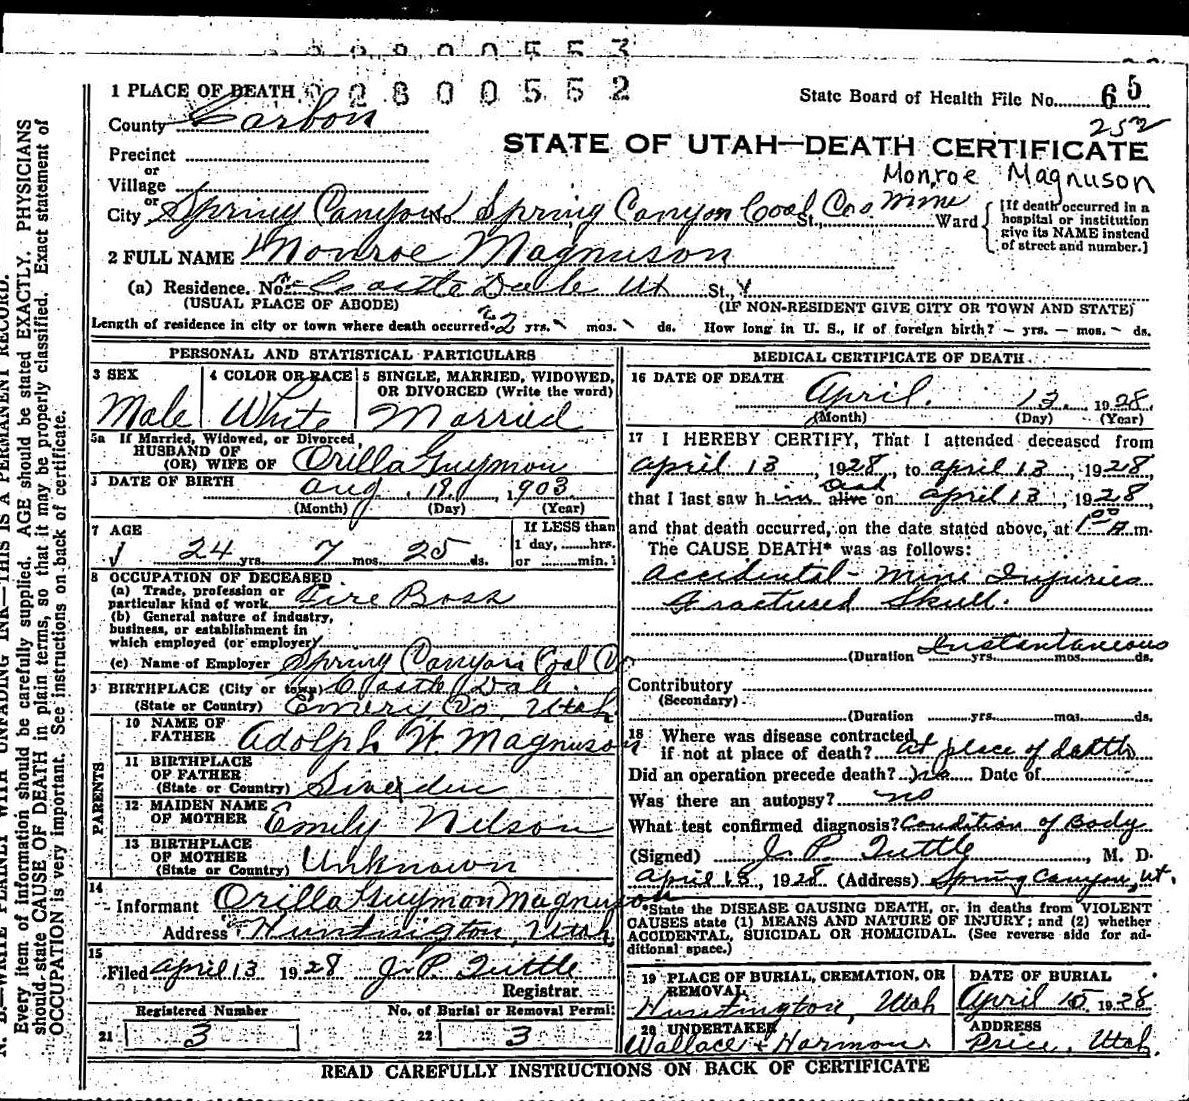 2800553
2800552
1 PLACE OF DEATH
State Board of Health File No. 65
County Carbon
252
STATE OF UTAH—DEATH CERTIFICATE
Precinct
or
Monroe Magnuson
Village
or
City Spring Canyon No Spring Canyon Coal Cos Mine St., Ward
[If death occurred in a hospital or institution give its NAME instead of street and number.]
2 FULL NAME Monroe Magnuson
(a) Residence. No. Castle Dale Ut St.,
(USUAL PLACE OF ABODE) (IF NON-RESIDENT GIVE CITY OR TOWN AND STATE)
Length of residence in city or town where death occurred 2 yrs. mos. ds. How long in U. S., if of foreign birth? – yrs. – mos. – ds.
PERSONAL AND STATISTICAL PARTICULARS
3 SEX 4 COLOR OR RACE 5 SINGLE, MARRIED, WIDOWED,
OR DIVORCED (Write the word)
Male White Married
5a If Married, Widowed, or Divorced
HUSBAND OF
(OR) WIFE OF Orilla Guymon
DATE OF BIRTH Aug. 19, 1903
(Month) (Day) (Year)
7 AGE If LESS than
24 yrs. 7 mos. 25 ds. 1 day, ......hrs.
or ........min.
8 OCCUPATION OF DECEASED
(a) Trade, profession or
particular kind of work Fire Boss
(b) General nature of industry,
business, or establishment in
which employed (or employer)
(c) Name of Employer Spring Canyon Coal Co
BIRTHPLACE (City or town) Castle Dale
(State or Country) Emery Co, Utah
PARENTS
10 NAME OF
FATHER Adolph W. Magnuson
11 BIRTHPLACE
OF FATHER
(State or Country) Sweden
12 MAIDEN NAME
OF MOTHER Emily Nelson
13 BIRTHPLACE
OF MOTHER
(State or Country) Unknown
14
Informant Orilla Guymon Magnuson
Address Huntington, Utah
15
Filed April 13 1928 J. P. Tuttle
Registrar.
Registered Number No. of Burial or Removal Permit
21 3 22 3
MEDICAL CERTIFICATE OF DEATH
16 DATE OF DEATH
April. 13. 1928.
(Month) (Day) (Year)
17 I HEREBY CERTIFY, That I attended deceased from
April 13, 1928, to April 13, 1928,
that I last saw him alive Dead on April 13, 1928,
and that death occurred, on the date stated above, at 1 00 A.m.
The CAUSE DEATH* was as follows:
Accidental – Mine Injuries
Fractured Skull.
(Duration Instantaneous yrs. mos. ds.
Contributory
(Secondary)
(Duration ........yrs. mos. ds.
18 Where was disease contracted
if not at place of death? At place of death
Did an operation precede death? no Date of
Was there an autopsy? no
What test confirmed diagnosis? Condition of Body
(Signed) J. P. Tuttle, M. D.
April 13, 1928 (Address) Spring Canyon, Ut.
*State the DISEASE CAUSING DEATH, or, in deaths from VIOLENT
CAUSES state (1) MEANS AND NATURE OF INJURY; and (2) whether
ACCIDENTAL, SUICIDAL OR HOMICIDAL. (See reverse side for ad-
ditional space.)
19 PLACE OF BURIAL, CREMATION, OR
REMOVAL
Huntington, Utah
DATE OF BURIAL
April 15 1928
20 UNDERTAKER
Wallace & Harmon
ADDRESS
Price, Utah.
READ CAREFULLY INSTRUCTIONS ON BACK OF CERTIFICATE
N. B.—WRITE PLAINLY WITH UNFADING INK—THIS IS A PERMANENT RECORD.
Every item of information should be carefully supplied. AGE should be stated EXACTLY. PHYSICIANS
should state CAUSE OF DEATH in plain terms, so that it may be properly classified. Exact statement of
OCCUPATION is very important. See instructions on back of certificate.